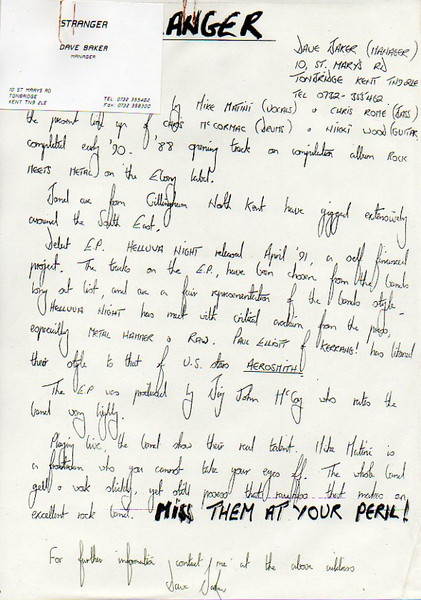 STRANGER
DAVE BAKER
MANAGER
10 ST MARYS RD
TONBRIDGE
KENT TN9 2LE
TEL 0732 355462
FAX 0732
RANGER
DAVE BAKER (MANAGER)
10, ST. MARYS RD
TONBRIDGE KENT TN9 2LE
TEL 0732- 355462
by MIKE MATINI (VOCALS) & CHRIS ROME (BASS)
the present line up of CHRIS McCORMAC (DRUMS) & NIKKI WOOD (GUITAR
completed early '90. '88 opening track on compilation album ROCK
MEETS METAL on the Ebony label.
Band are from Gillingham North Kent have gigged extensively
around the South East.
Debut E.P. HELLUVA NIGHT released April '91, a self financed
project. The tracks on the E.P., have been chosen from the bands
long set list, and are a fair representation of the bands style.
HELLUVA NIGHT has met with critical acclaim from the press,
especially METAL HAMMER & RAW. PAUL ELLIOTT of KERRANG! has likened
their style to that of U.S. stars AEROSMITH.
The E.P was produced by Big John McCoy who rates the
band very highly.
Playing live, the band show their real talent. Mike Matini is
a frontman who you cannot take your eyes off. The whole band
gell & work slickly, yet still possess that rawness that makes an
excellent rock band. MISS THEM AT YOUR PERIL!
For further information contact me at the above address
Dave Baker